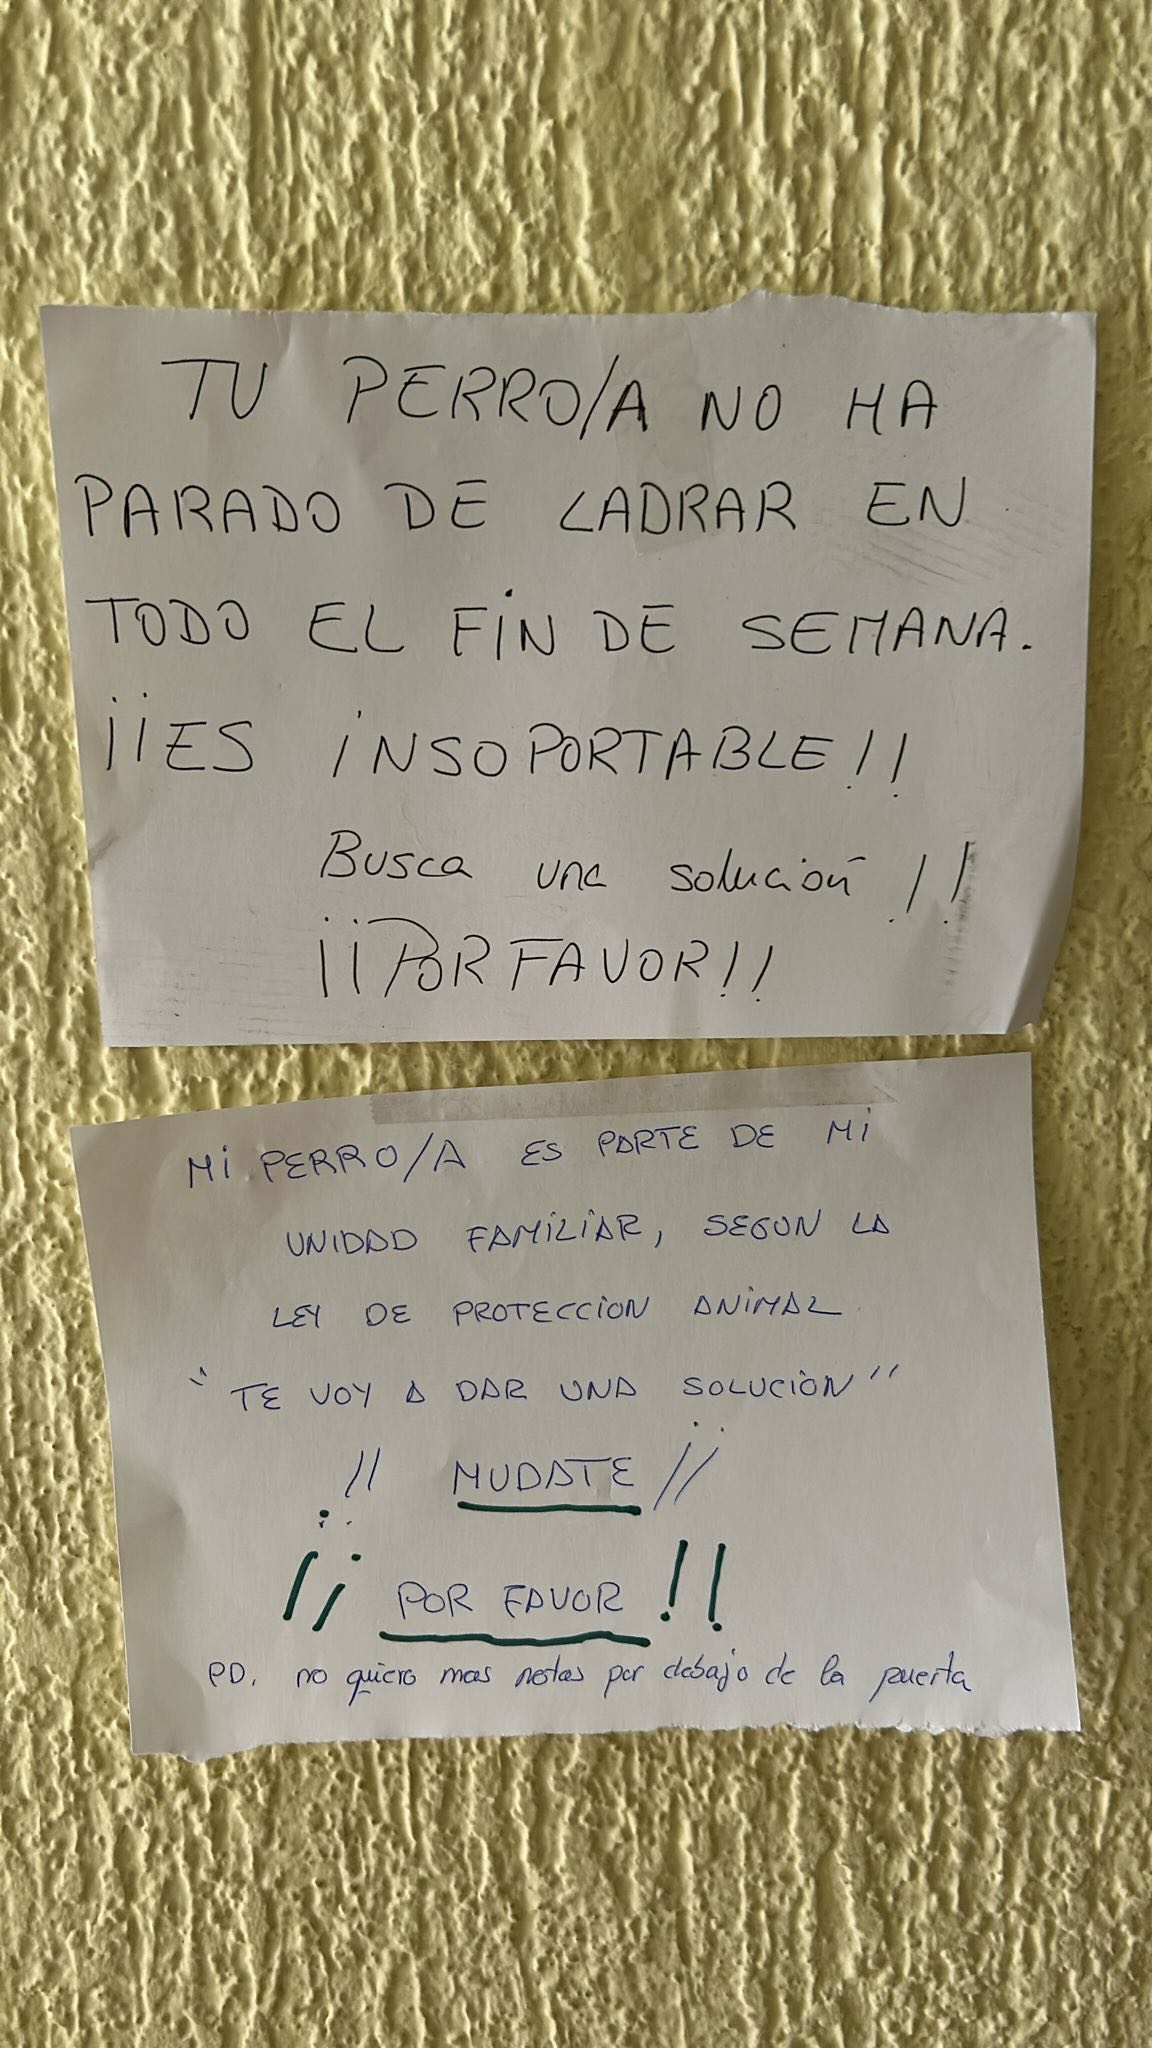 TU PERRO/A NO HA
PARADO DE LADRAR EN
TODO EL FIN DE SEMANA.
¡¡ES INSOPORTABLE!!
Busca una solución!!
¡¡POR FAVOR!!
MI PERRO/A ES PARTE DE MI
UNIDAD FAMILIAR, SEGUN LA
LEY DE PROTECCION ANIMAL
"TE VOY A DAR UNA SOLUCION"
!! MUDATE ¡¡
¡¡ POR FAVOR !!
PD. no quiero mas notas por debajo de la puerta